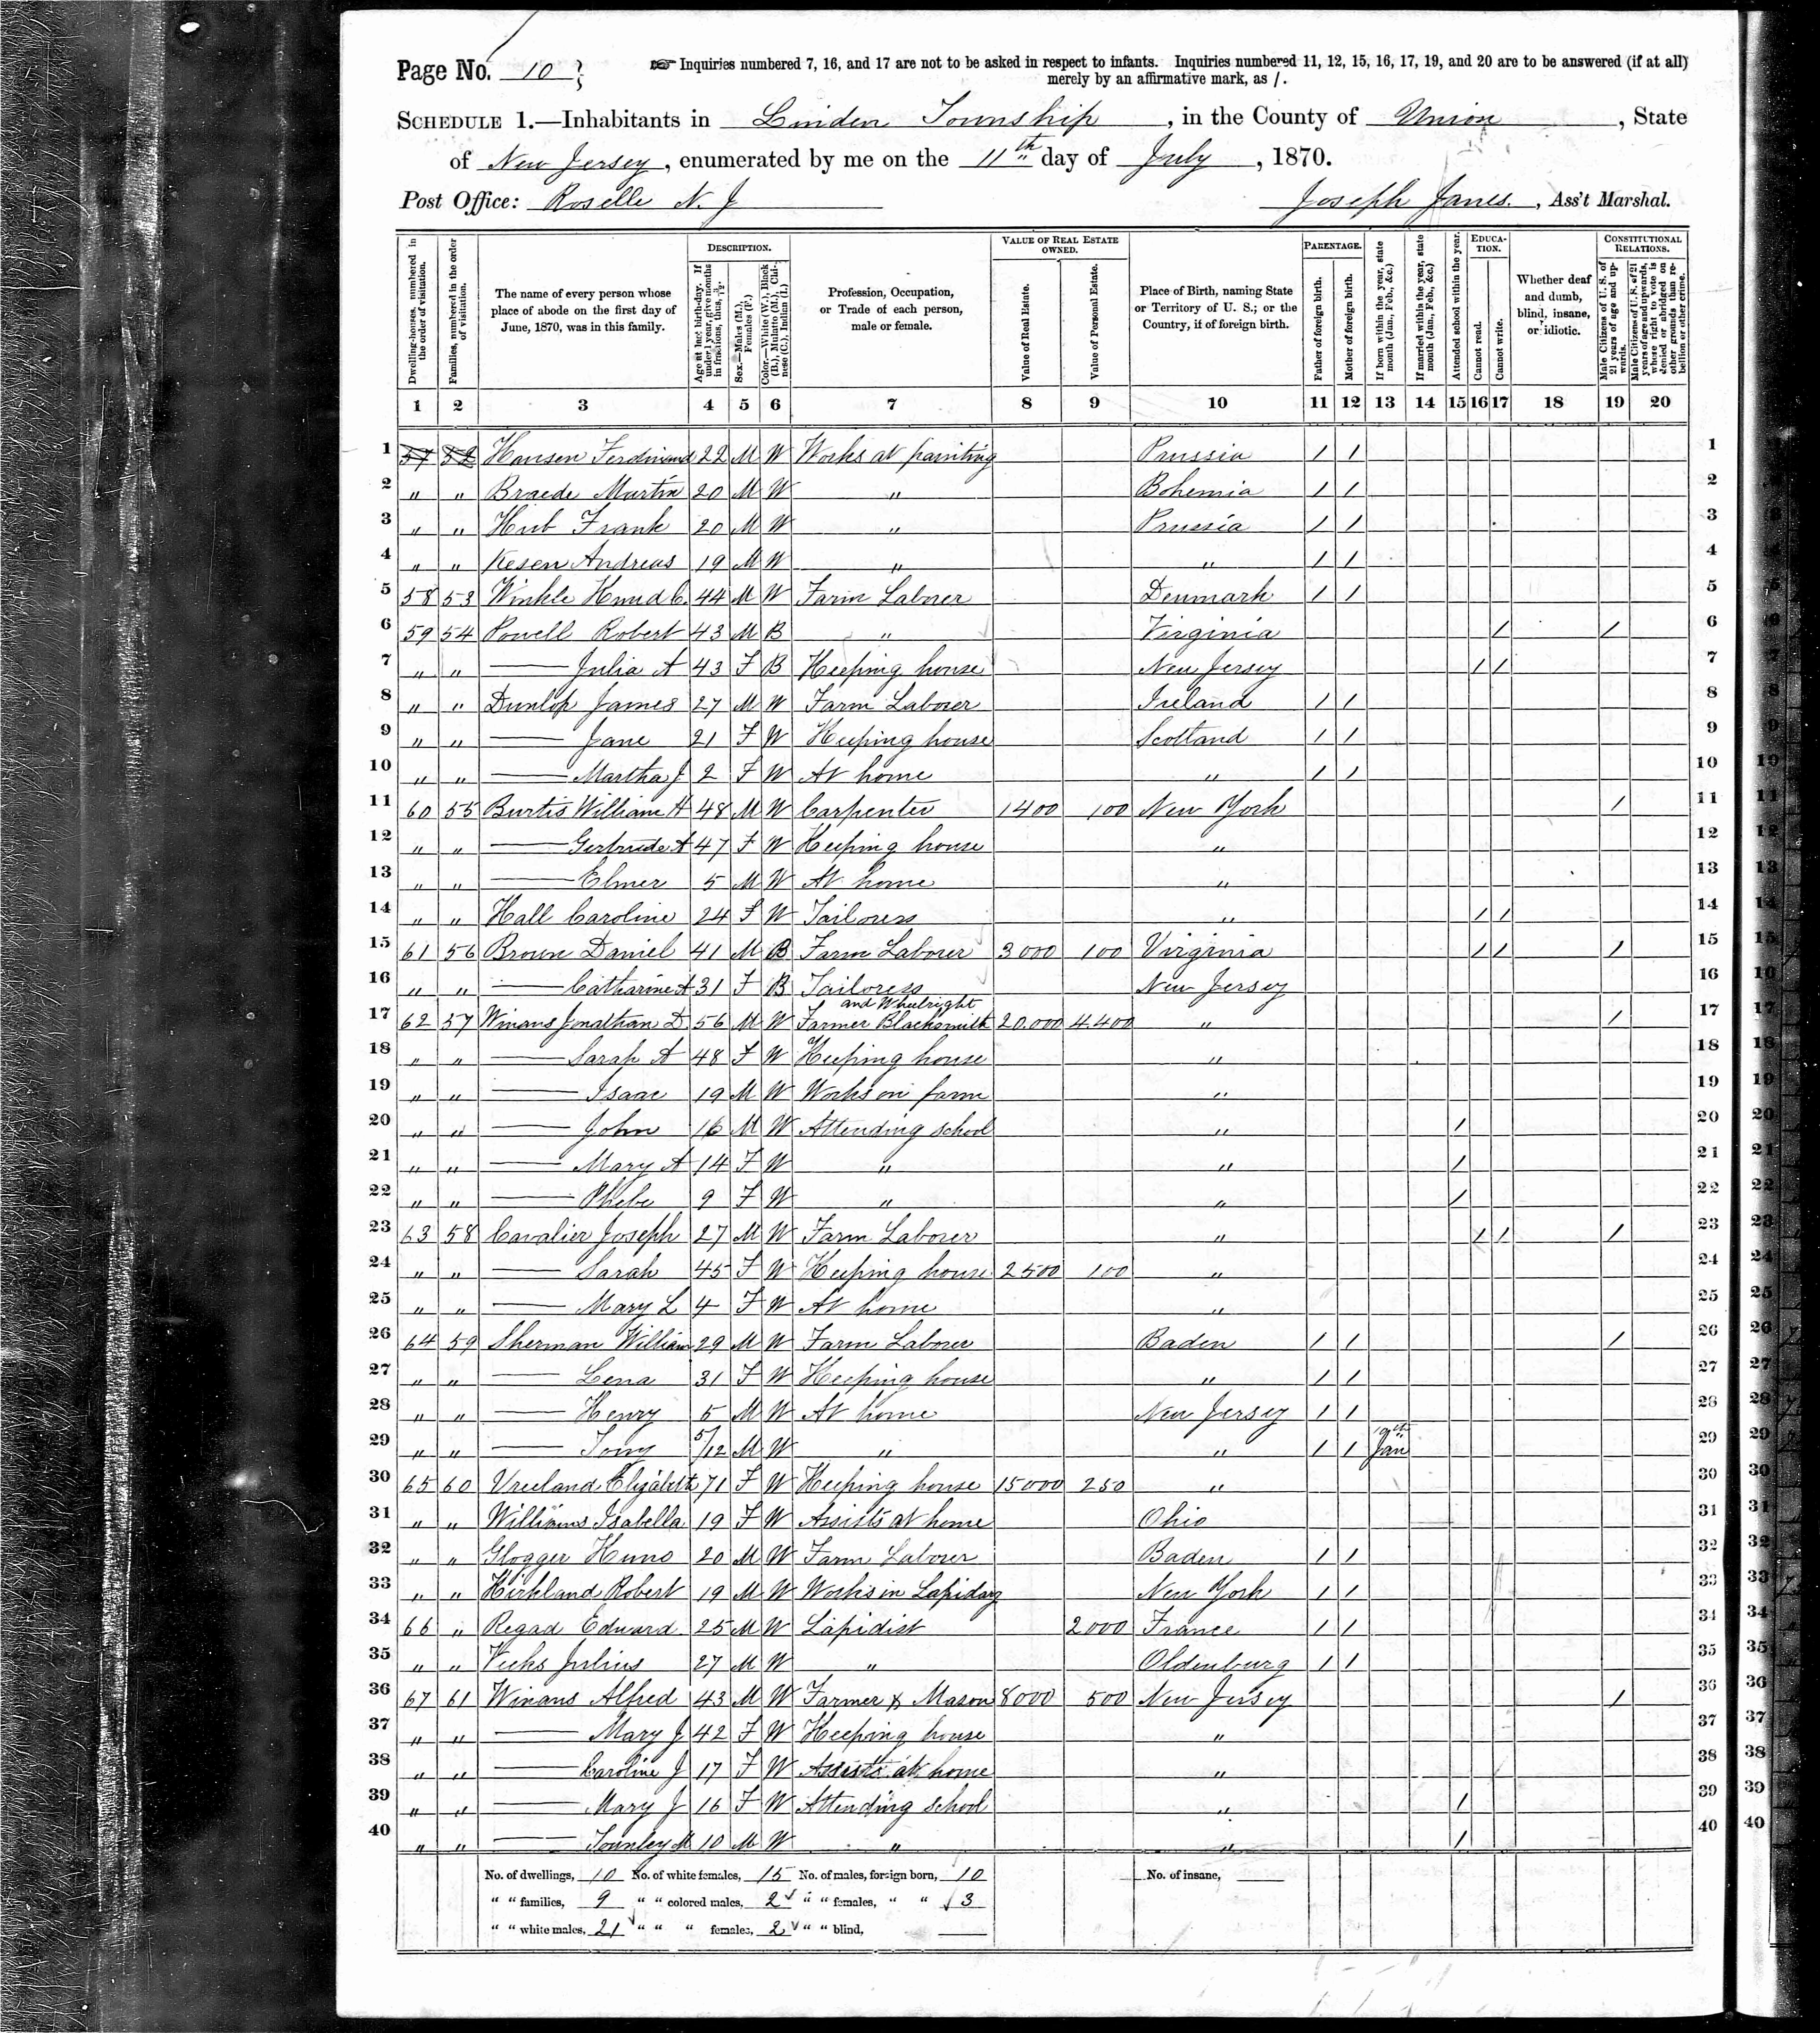 Page No. 10
☞ Inquiries numbered 7, 16, and 17 are not to be asked in respect to infants. Inquiries numbered 11, 12, 15, 16, 17, 19, and 20 are to be answered (if at all)
merely by an affirmative mark, as /.
SCHEDULE 1.—Inhabitants in Linden Township, in the County of Union, State
of New Jersey, enumerated by me on the 11th day of July, 1870.
Post Office: Roselle N. J
Joseph Janes., Ass't Marshal.
Dwelling-houses, numbered in the order of visitation.
Families, numbered in the order of visitation.
The name of every person whose place of abode on the first day of June, 1870, was in this family.
DESCRIPTION.
Age at last birth-day. If under 1 year, give months in fractions, thus, 3/12.
Sex.—Males (M.), Females (F.)
Color.—White (W.), Black (B.), Mulatto (M.), Chinese (C.), Indian (I.)
Profession, Occupation, or Trade of each person, male or female.
VALUE OF REAL ESTATE OWNED.
Value of Real Estate.
Value of Personal Estate.
Place of Birth, naming State or Territory of U. S.; or the Country, if of foreign birth.
PARENTAGE.
Father of foreign birth.
Mother of foreign birth.
If born within the year, state month (Jan., Feb., &c.)
If married within the year, state month (Jan., Feb., &c.)
Attended school within the year.
EDUCATION.
Cannot read.
Cannot write.
Whether deaf and dumb, blind, insane, or idiotic.
CONSTITUTIONAL RELATIONS.
Male Citizens of U. S. of 21 years of age and upwards.
Male Citizens of U. S. of 21 years of age and upwards, whose right to vote is denied or abridged on other grounds than rebellion or other crime.
1 2 3 4 5 6 7 8 9 10 11 12 13 14 15 16 17 18 19 20
1 57 52 Hansen Ferdinand 22 M W Works at painting Prussia / / 1
2 " " Braede Martin 20 M W " Bohemia / / 2
3 " " Hub Frank 20 M W " Prussia / / 3
4 " " Kesen Andreas 19 M W " " / / 4
5 58 53 Winkle Knud C. 44 M W Farm Laborer Denmark / / 5
6 59 54 Powell Robert 43 M B " Virginia / / 6
7 " " —— Julia A 43 F B Keeping house New Jersey / / 7
8 " " Dunlop James 27 M W Farm Laborer Ireland / / 8
9 " " —— Jane 21 F W Keeping house Scotland / / 9
10 " " —— Martha J 2 F W At home " / / 10
11 60 55 Burtis William H 48 M W Carpenter 1400 100 New York / 11
12 " " —— Gertrude A 47 F W Keeping house " 12
13 " " —— Elmer 5 M W At home " 13
14 " " Hall Caroline 24 F W Tailoress " / / 14
15 61 56 Brown Daniel 41 M B Farm Laborer 3000 100 Virginia / / / 15
16 " " —— Catharine A 31 F B Tailoress New Jersey 16
and Wheelright
17 62 57 Winans Jonathan D 56 M W Farmer Blacksmith 20.000 4.400 " / 17
18 " " —— Sarah A 48 F W Keeping house " 18
19 " " —— Isaac 19 M W Works on farm " 19
20 " " —— John 16 M W Attending school " / 20
21 " " —— Mary A 14 F W " " / 21
22 " " —— Phebe 9 F W " " / 22
23 63 58 Cavalier Joseph 27 M W Farm Laborer " / / / 23
24 " " —— Sarah 45 F W Keeping house 2500 100 " 24
25 " " —— Mary L 4 F W At home " 25
26 64 59 Sherman William 29 M W Farm Laborer Baden / / / 26
27 " " —— Lena 31 F W Keeping house " / / 27
28 " " —— Henry 5 M W At home New Jersey / / 28
29 " " —— Tony 5/12 M W " " / / 19th Jan 29
30 65 60 Vreeland Elizabeth 71 F W Keeping house 15000 250 " 30
31 " " Williams Isabella 19 F W Assists at home Ohio 31
32 " " Glogger Kuno 20 M W Farm Laborer Baden / / 32
33 " " Kirkland Robert 19 M W Works in Lapiday New York / / 33
34 66 " Regad Edward 25 M W Lapidist 2000 France / / 34
35 " " Vicks Julius 27 M W " Oldenburg / / 35
36 67 61 Winans Alfred 43 M W Farmer & Mason 8000 500 New Jersey / 36
37 " " —— Mary J 42 F W Keeping house " 37
38 " " —— Caroline J 17 F W Assists at home " 38
39 " " —— Mary J 16 F W Attending school " / 39
40 " " —— Townley M 10 M W " " / 40
No. of dwellings, 10 No. of white females, 15 No. of males, foreign born, 10 No. of insane,
" " families, 9 " " colored males, 2 " " females, " " 3
" " white males, 21 " " " females, 2 " " blind,